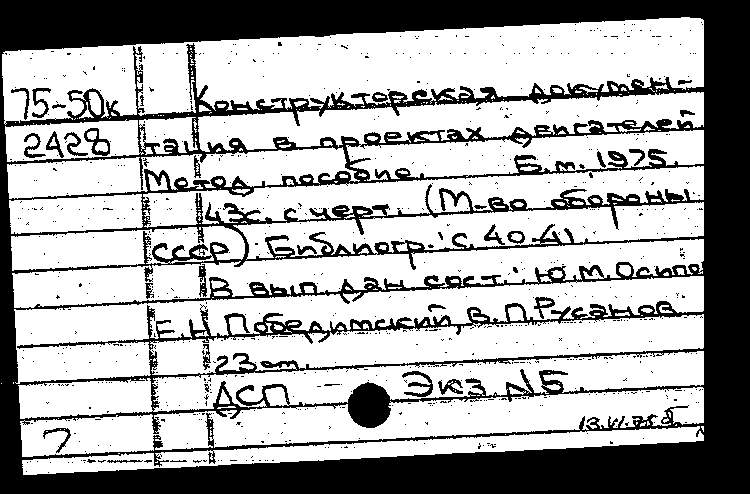 75-50к Конструкторская докумен-
2428 тация в проектах двигателей.
Метод. пособие. Б.м. 1975.
43с. с черт. (М-во обороны
СССР). Библиогр.: с. 40-41.
В вып. дан. сост.: Ю.М.Осипов
Е.Н.Победимский, В.П.Русанов
23 см.
ДСП. Экз. №5.
13.VI.75
7